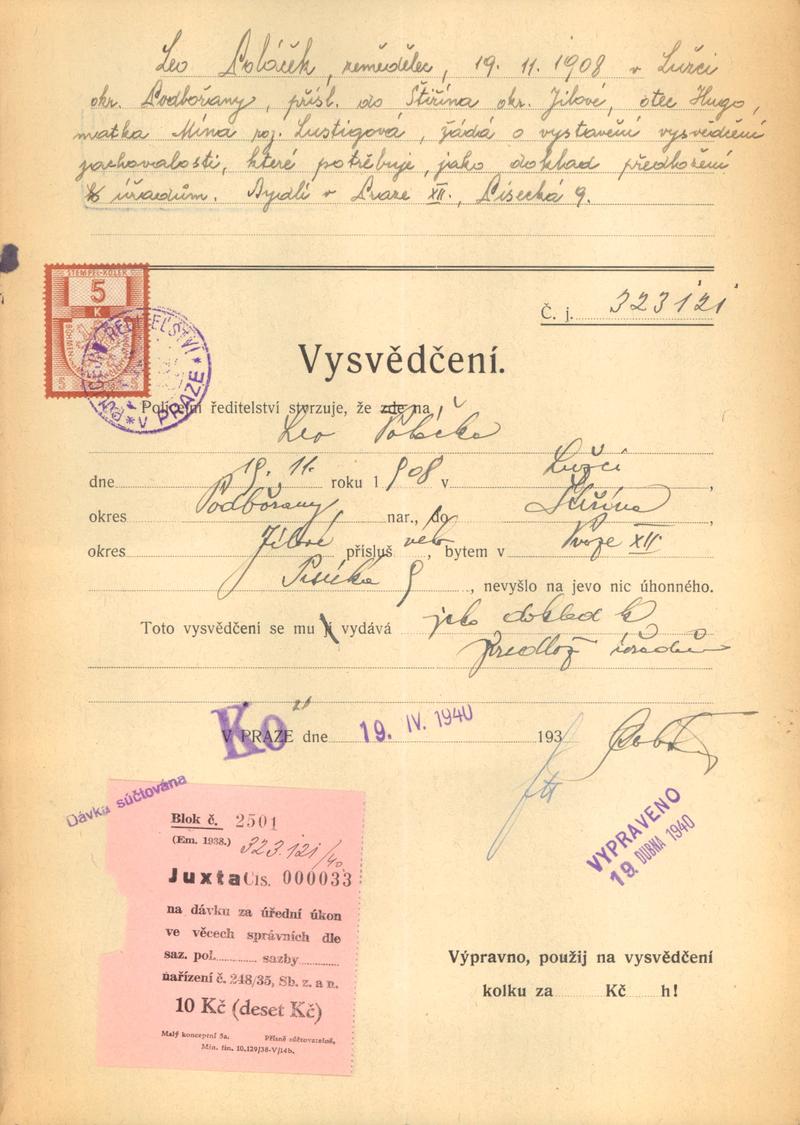 Leo Poláček, zemědělec, 19. 11. 1908 v Lužci
okr. Podbořany, přísl. do Štiřína okr. Jílové, otec Hugo,
matka Mína roz. Lustigová, žádá o vystavení vysvědčení
zachovalosti, které potřebuje, jako doklad předložení
k úřadům. Bydlí v Praze XII., Písecká 9.
STEMPEL-KOLEK
5
K
5 5
Č. j. 323121
Vysvědčení.
POLICEJNÍ ŘEDITELSTVÍ * V PRAZE *
Policejní ředitelství stvrzuje, že zde na
Leo Poláčka
dne 19. 11. roku 1908 v Lužci,
okres Podbořany nar., do Štiřína,
okres Jílové přísluš, bytem v Praze XII
Písecká 9, nevyšlo na jevo nic úhonného.
Toto vysvědčení se mu ji vydává jako doklad k
předlož úřadům
Ko
V PRAZE dne 19. IV. 1940 193
Dávka súčtována
VYPRAVENO
19. DUBNA 1940
Blok č. 2501
(Em. 1938.) 323.121/40
Juxta Čís. 000033
na dávku za úřední úkon
ve věcech správních dle
saz. pol. sazby
nařízení č. 248/35, Sb. z. a n.
10 Kč (deset Kč)
Malý konceptní 5a. Přísně súčtovatelné.
Min. fin. 10.129/38-V/14b.
Výpravno, použij na vysvědčení
kolku za Kč h!